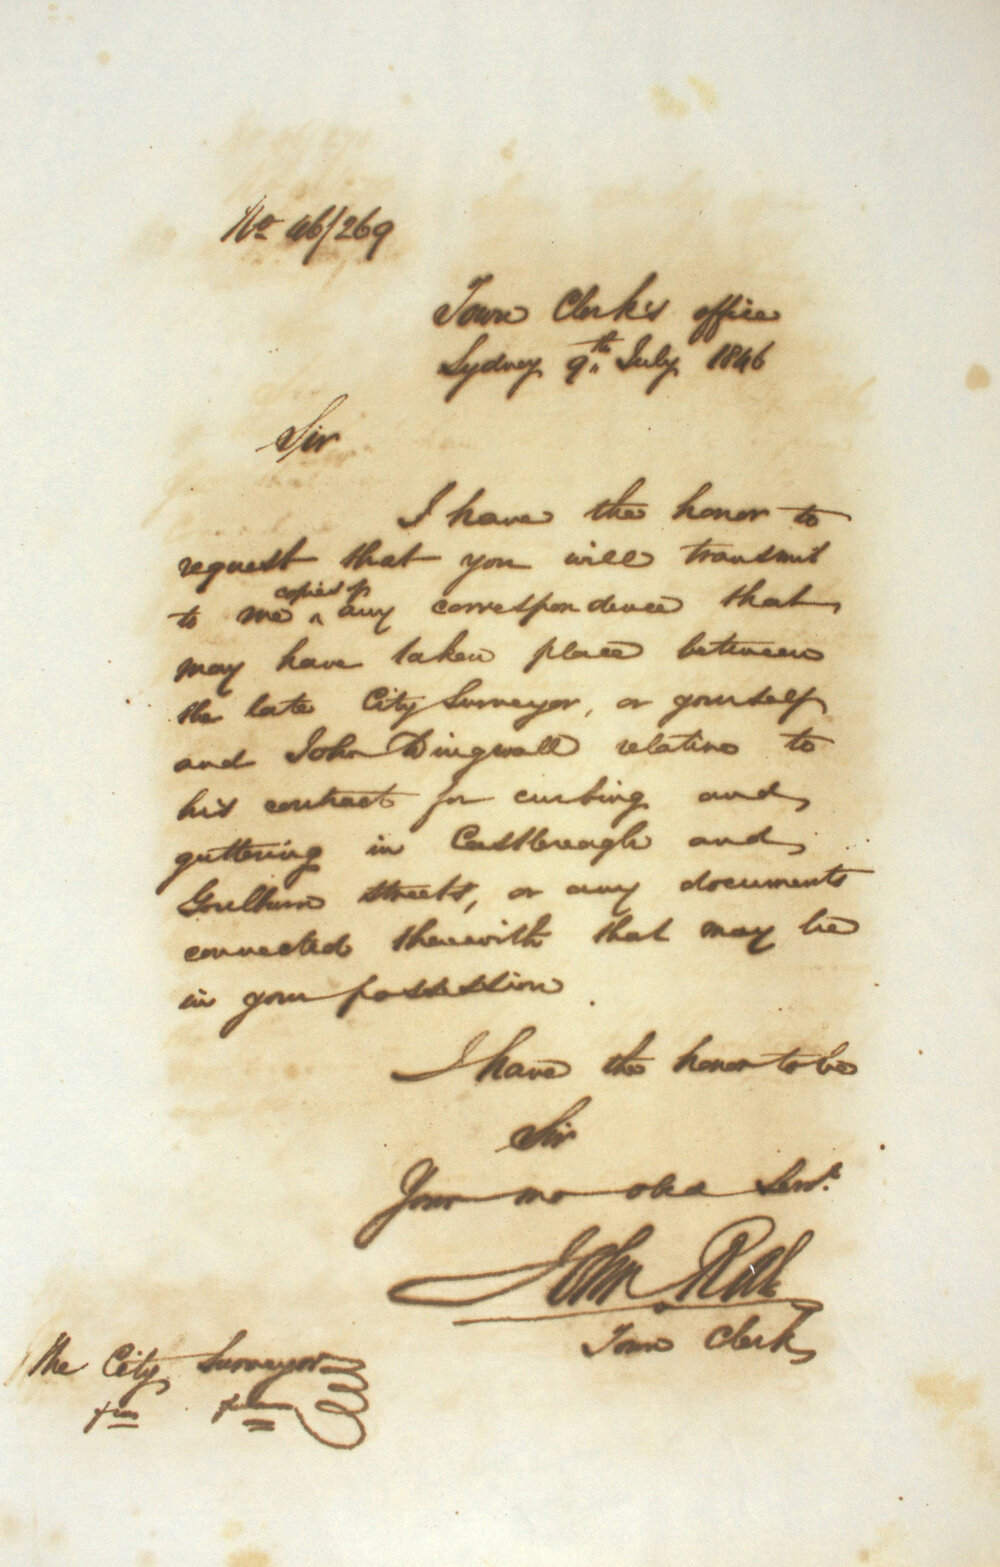 No 46/269
Town Clerk's office
Sydney 9th July 1846
Sir
I have the honor to
request that you will transmit
copies of
to me ^ any correspondence that
may have taken place between
the late City Surveyor, or yourself
and John Dingwall relative to
his contract for curbing and
guttering in Castlereagh and
Goulburn streets, or any documents
connected therewith that may be
in your possession
I have the honor to be
Sir
Your mo obed Servt
John
Town Clerk
The City Surveyor